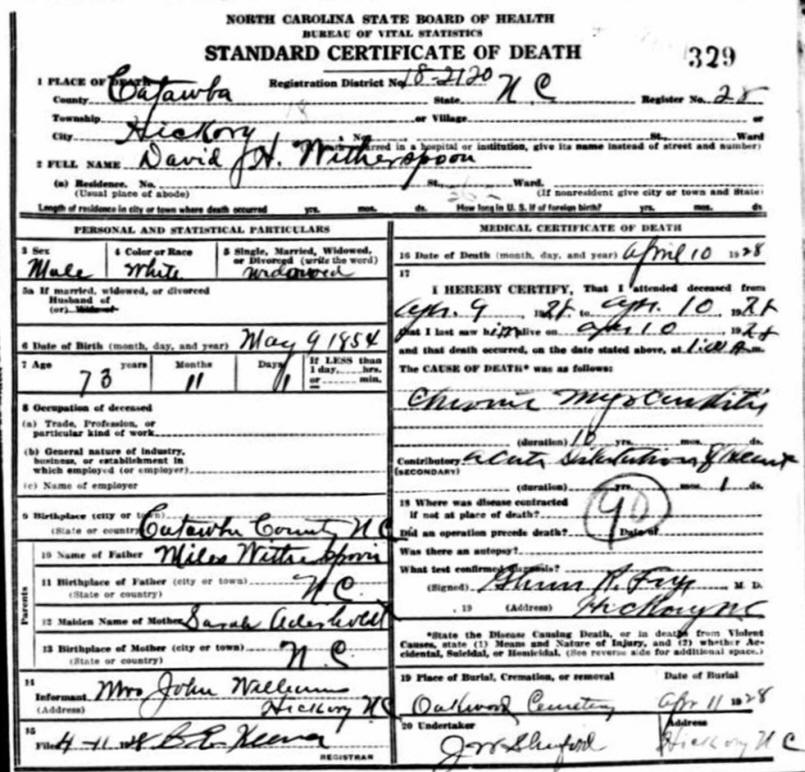 NORTH CAROLINA STATE BOARD OF HEALTH
BUREAU OF VITAL STATISTICS
STANDARD CERTIFICATE OF DEATH
329
1 PLACE OF DEATH
Registration District No. 18-2120
County Catawba State N C Register No. 28
Township or Village or
City Hickory No. St., Ward
(If death occurred in a hospital or institution, give its name instead of street and number)
2 FULL NAME David J H. Witherspoon
(a) Residence. No. St., Ward.
(Usual place of abode) (If nonresident give city or town and State)
Length of residence in city or town where death occurred yrs. mos. ds. How long in U. S. if of foreign birth? yrs. mos. ds.
PERSONAL AND STATISTICAL PARTICULARS
3 Sex
Male
4 Color or Race
White
5 Single, Married, Widowed, or Divorced (write the word)
widowed
5a If married, widowed, or divorced
Husband of
(or) Wife of
6 Date of Birth (month, day, and year) May 9 1854
7 Age 73 years Months 11 Days 1 If LESS than
1 day, hrs.
or min.
8 Occupation of deceased
(a) Trade, Profession, or
particular kind of work
(b) General nature of industry,
business, or establishment in
which employed (or employer)
(c) Name of employer
9 Birthplace (city or town)
(State or country) Catawba County N C
Parents
10 Name of Father Miles Witherspoon
11 Birthplace of Father (city or town)
(State or country) N C
12 Maiden Name of Mother Sarah
13 Birthplace of Mother (city or town)
(State or country) N. C.
14
Informant Mrs John Williams
(Address) Hickory N C
15
Filed 4-11 1928
REGISTRAR
MEDICAL CERTIFICATE OF DEATH
16 Date of Death (month, day, and year) April 10 1928
17
I HEREBY CERTIFY, That I attended deceased from
Apr. 9 1928 to Apr. 10 1928
that I last saw him alive on Apr 10 1928
and that death occurred, on the date stated above, at m.
The CAUSE OF DEATH* was as follows:
Chronic Myocarditis
(duration) 10 yrs. mos. ds.
Contributory Acute Dilatation of Heart
(SECONDARY)
(duration) yrs. mos. 1 ds.
18 Where was disease contracted
if not at place of death?
90
Did an operation precede death? Date of
Was there an autopsy?
What test confirmed diagnosis?
(Signed) Glenn R. Frye M. D.
, 19 (Address) Hickory NC
*State the Disease Causing Death, or in deaths from Violent
Causes, state (1) Means and Nature of Injury, and (2) whether Ac-
cidental, Suicidal, or Homicidal. (See reverse side for additional space.)
19 Place of Burial, Cremation, or removal Date of Burial
Oakwood Cemetery Apr 11 1928
20 Undertaker Address
J W Shuford Hickory N C